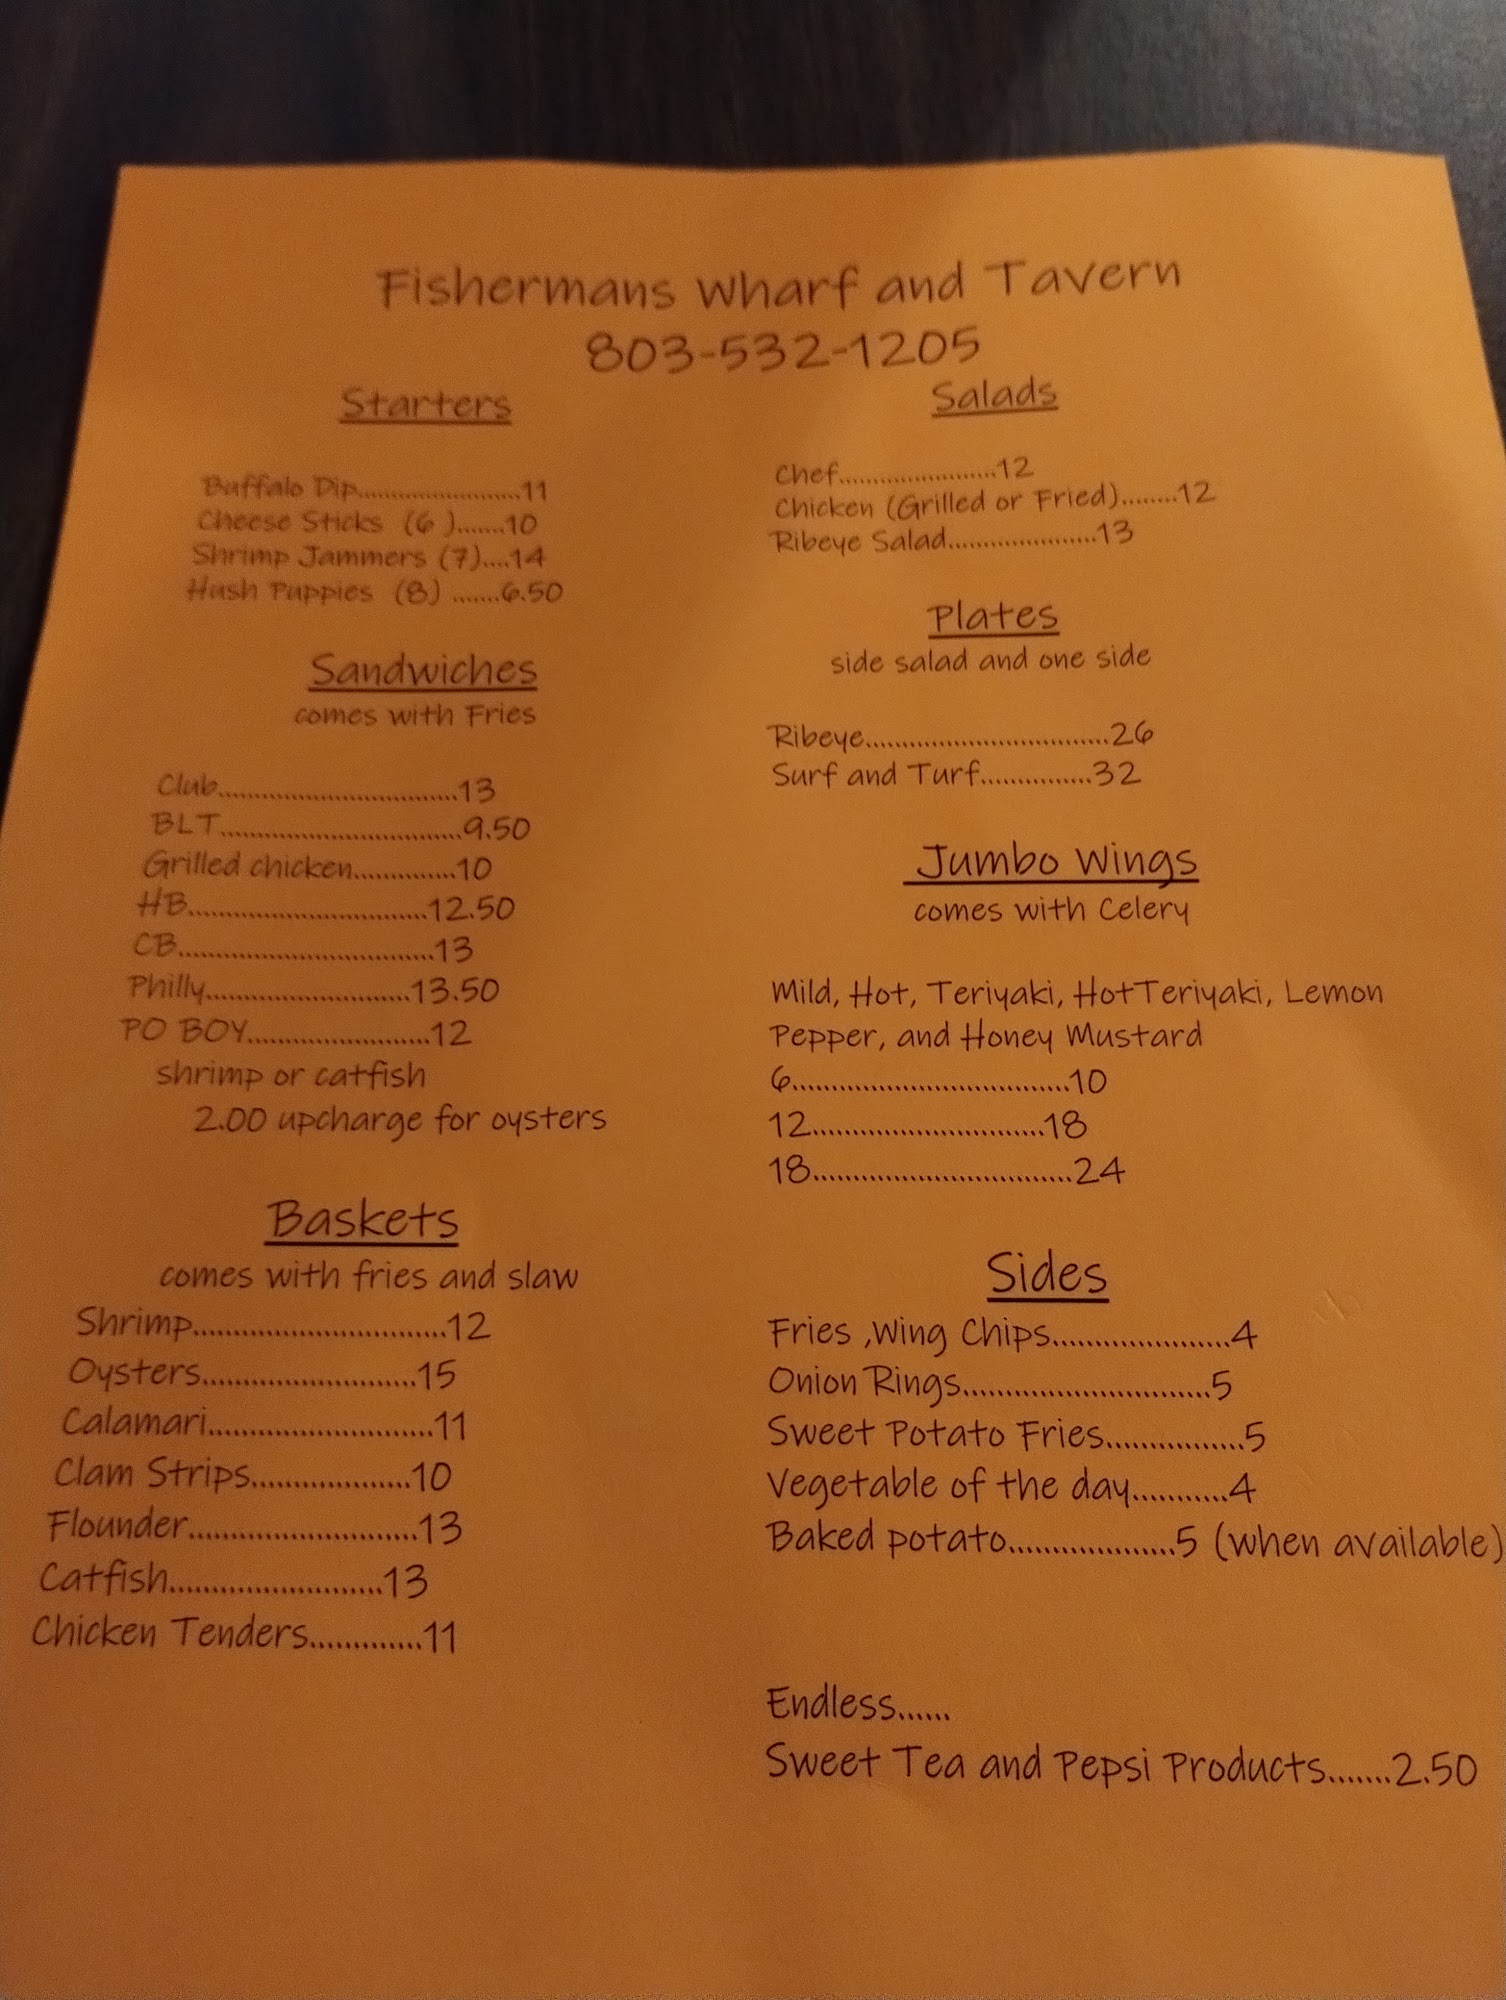 Fishermans Wharf and Tavern
803-532-1205
Starters
Buffalo Dip........................11
Cheese Sticks (6 ).......10
Shrimp Jammers (7)....14
Hush Puppies (8) .......6.50
Sandwiches
comes with Fries
Club................................13
BLT.................................9.50
Grilled chicken..............10
HB................................12.50
CB...................................13
Philly............................13.50
PO BOY.........................12
shrimp or catfish
2.00 upcharge for oysters
Baskets
comes with fries and slaw
Shrimp................................12
Oysters...........................15
Calamari............................11
Clam Strips....................10
Flounder.............................13
Catfish...........................13
Chicken Tenders..............11
Salads
Chef......................12
Chicken (Grilled or Fried)........12
Ribeye Salad.....................13
Plates
side salad and one side
Ribeye.................................26
Surf and Turf...............32
Jumbo Wings
comes with Celery
Mild, Hot, Teriyaki, HotTeriyaki, Lemon
Pepper, and Honey Mustard
6...................................10
12.............................18
18.................................24
Sides
Fries ,Wing Chips......................4
Onion Rings...............................5
Sweet Potato Fries.................5
Vegetable of the day............4
Baked potato....................5 (when available)
Endless......
Sweet Tea and Pepsi Products.......2.50